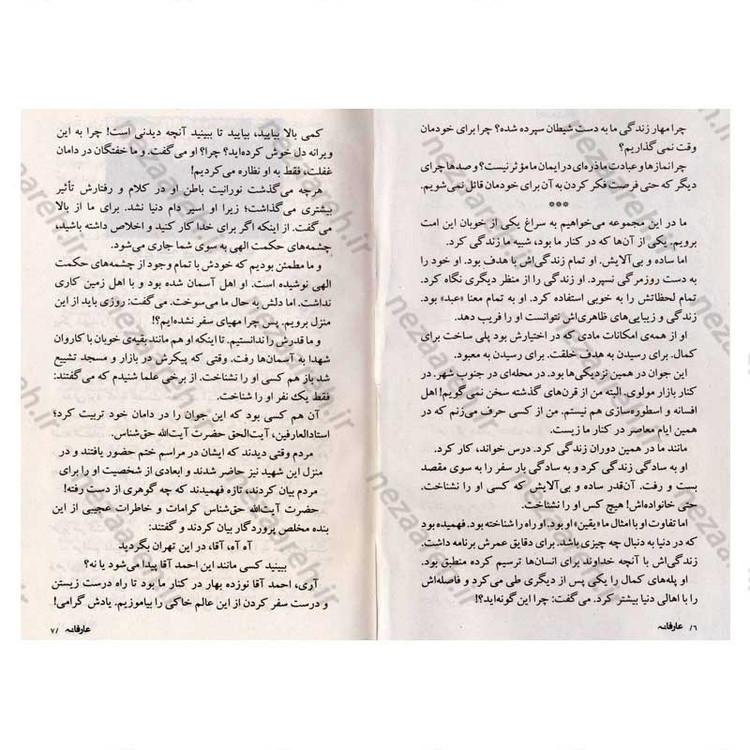 چرا مهار زندگی ما به دست شیطان سپرده شده؟ چرا برای خودمان
وقت نمی‌گذاریم؟
چرا نمازها و عبادت ما ذره‌ای در ایمان ما مؤثر نیست؟ و صدها چرای
دیگر که حتی فرصت فکر کردن به آن برای خودمان قائل نمی‌شویم.
***
ما در این مجموعه می‌خواهیم به سراغ یکی از خوبان این امت
برویم. یکی از آن‌ها که در کنار ما بود، شبیه ما زندگی کرد.
اما ساده و بی‌آلایش. او تمام زندگی‌اش با هدف بود. او خود را
به دست روزمرگی نسپرد. او زندگی را از منظر دیگری نگاه کرد.
تمام لحظاتش را به خوبی استفاده کرد. او به تمام معنا «عبد» بود.
زندگی و زیبایی‌های ظاهری‌اش نتوانست او را فریب دهد.
او از همه‌ی امکانات مادی که در اختیارش بود پلی ساخت برای
کمال. برای رسیدن به هدف خلقت. برای رسیدن به معبود.
این جوان در همین نزدیکی‌ها بود. در محله‌ای در جنوب شهر. در
کنار بازار مولوی. البته من از قرن‌های گذشته سخن نمی‌گویم! اهل
افسانه و اسطوره‌سازی هم نیستم. من از کسی حرف می‌زنم که در
همین ایام معاصر در کنار ما زیست.
مانند ما در همین دوران زندگی کرد. درس خواند، کار کرد.
او به سادگی زندگی کرد و به سادگی بار سفر را به سوی مقصد
بست و رفت. آن‌قدر ساده و بی‌آلایش که کسی او را نشناخت.
حتی خانواده‌اش! هیچ کس او را نشناخت.
اما تفاوت او با امثال ما «یقین» او بود. او راه را شناخته بود. فهمیده بود
که در دنیا به دنبال چه چیزی باشد. برای دقایق عمرش برنامه داشت.
زندگی‌اش با آنچه خداوند برای انسان‌ها ترسیم کرده منطبق بود.
او پله‌های کمال را یکی پس از دیگری طی می‌کرد و فاصله‌اش
را با اهالی دنیا بیشتر کرد. می‌گفت: چرا این گونه‌اید؟!
۶/ عارفانه
کمی بالا بیایید، بیایید تا ببینید آنچه دیدنی است! چرا به این
ویرانه دل خوش کرده‌اید؟ چرا؟ او می‌گفت. و ما خفتگان در دامان
غفلت، فقط به او نظاره می‌کردیم!
هرچه می‌گذشت نورانیت باطن او در کلام و رفتارش تأثیر
بیشتری می‌گذاشت؛ زیرا او اسیر دام دنیا نشد. برای ما از بالا
می‌گفت. از اینکه اگر برای خدا کار کنید و اخلاص داشته باشید،
چشمه‌های حکمت الهی به سوی شما جاری می‌شود.
و ما مطمئن بودیم که خودش با تمام وجود از چشمه‌های حکمت
الهی نوشیده است. او اهل آسمان شده بود و با اهل زمین کاری
نداشت. اما دلش به حال ما می‌سوخت. می‌گفت: روزی باید از این
منزل برویم. پس چرا مهیای سفر نشده‌ایم؟!
و ما قدرش را ندانستیم. تا اینکه او هم مانند بقیه‌ی خوبان با کاروان
شهدا به آسمان‌ها رفت. وقتی که پیکرش در بازار و مسجد تشییع
شد باز هم کسی او را نشناخت. از برخی علما شنیدم که می‌گفتند:
فقط یک نفر او را شناخت.
آن هم کسی بود که این جوان را در دامان خود تربیت کرد؛
استادالعارفین، آیت‌الحق حضرت آیت‌الله حق‌شناس.
مردم وقتی دیدند که ایشان در مراسم ختم حضور یافتند و در
منزل این شهید نیز حاضر شدند و ابعادی از شخصیت او را برای
مردم بیان کردند، تازه فهمیدند که چه گوهری از دست رفته!
حضرت آیت‌الله حق‌شناس کرامات و خاطرات عجیبی از این
بنده مخلص پروردگار بیان کردند و گفتند:
آه آه، آقا، در این تهران بگردید
ببینید کسی مانند این احمد آقا پیدا می‌شود یا نه؟
آری، احمد آقا نوزده بهار در کنار ما بود تا راه درست زیستن
و درست سفر کردن از این عالم خاکی را بیاموزیم. یادش گرامی!
عارفانه /۷
nezaareh.ir